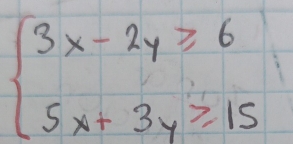 3x - 2y ⩾ 6
5x + 3y ⩾ 15